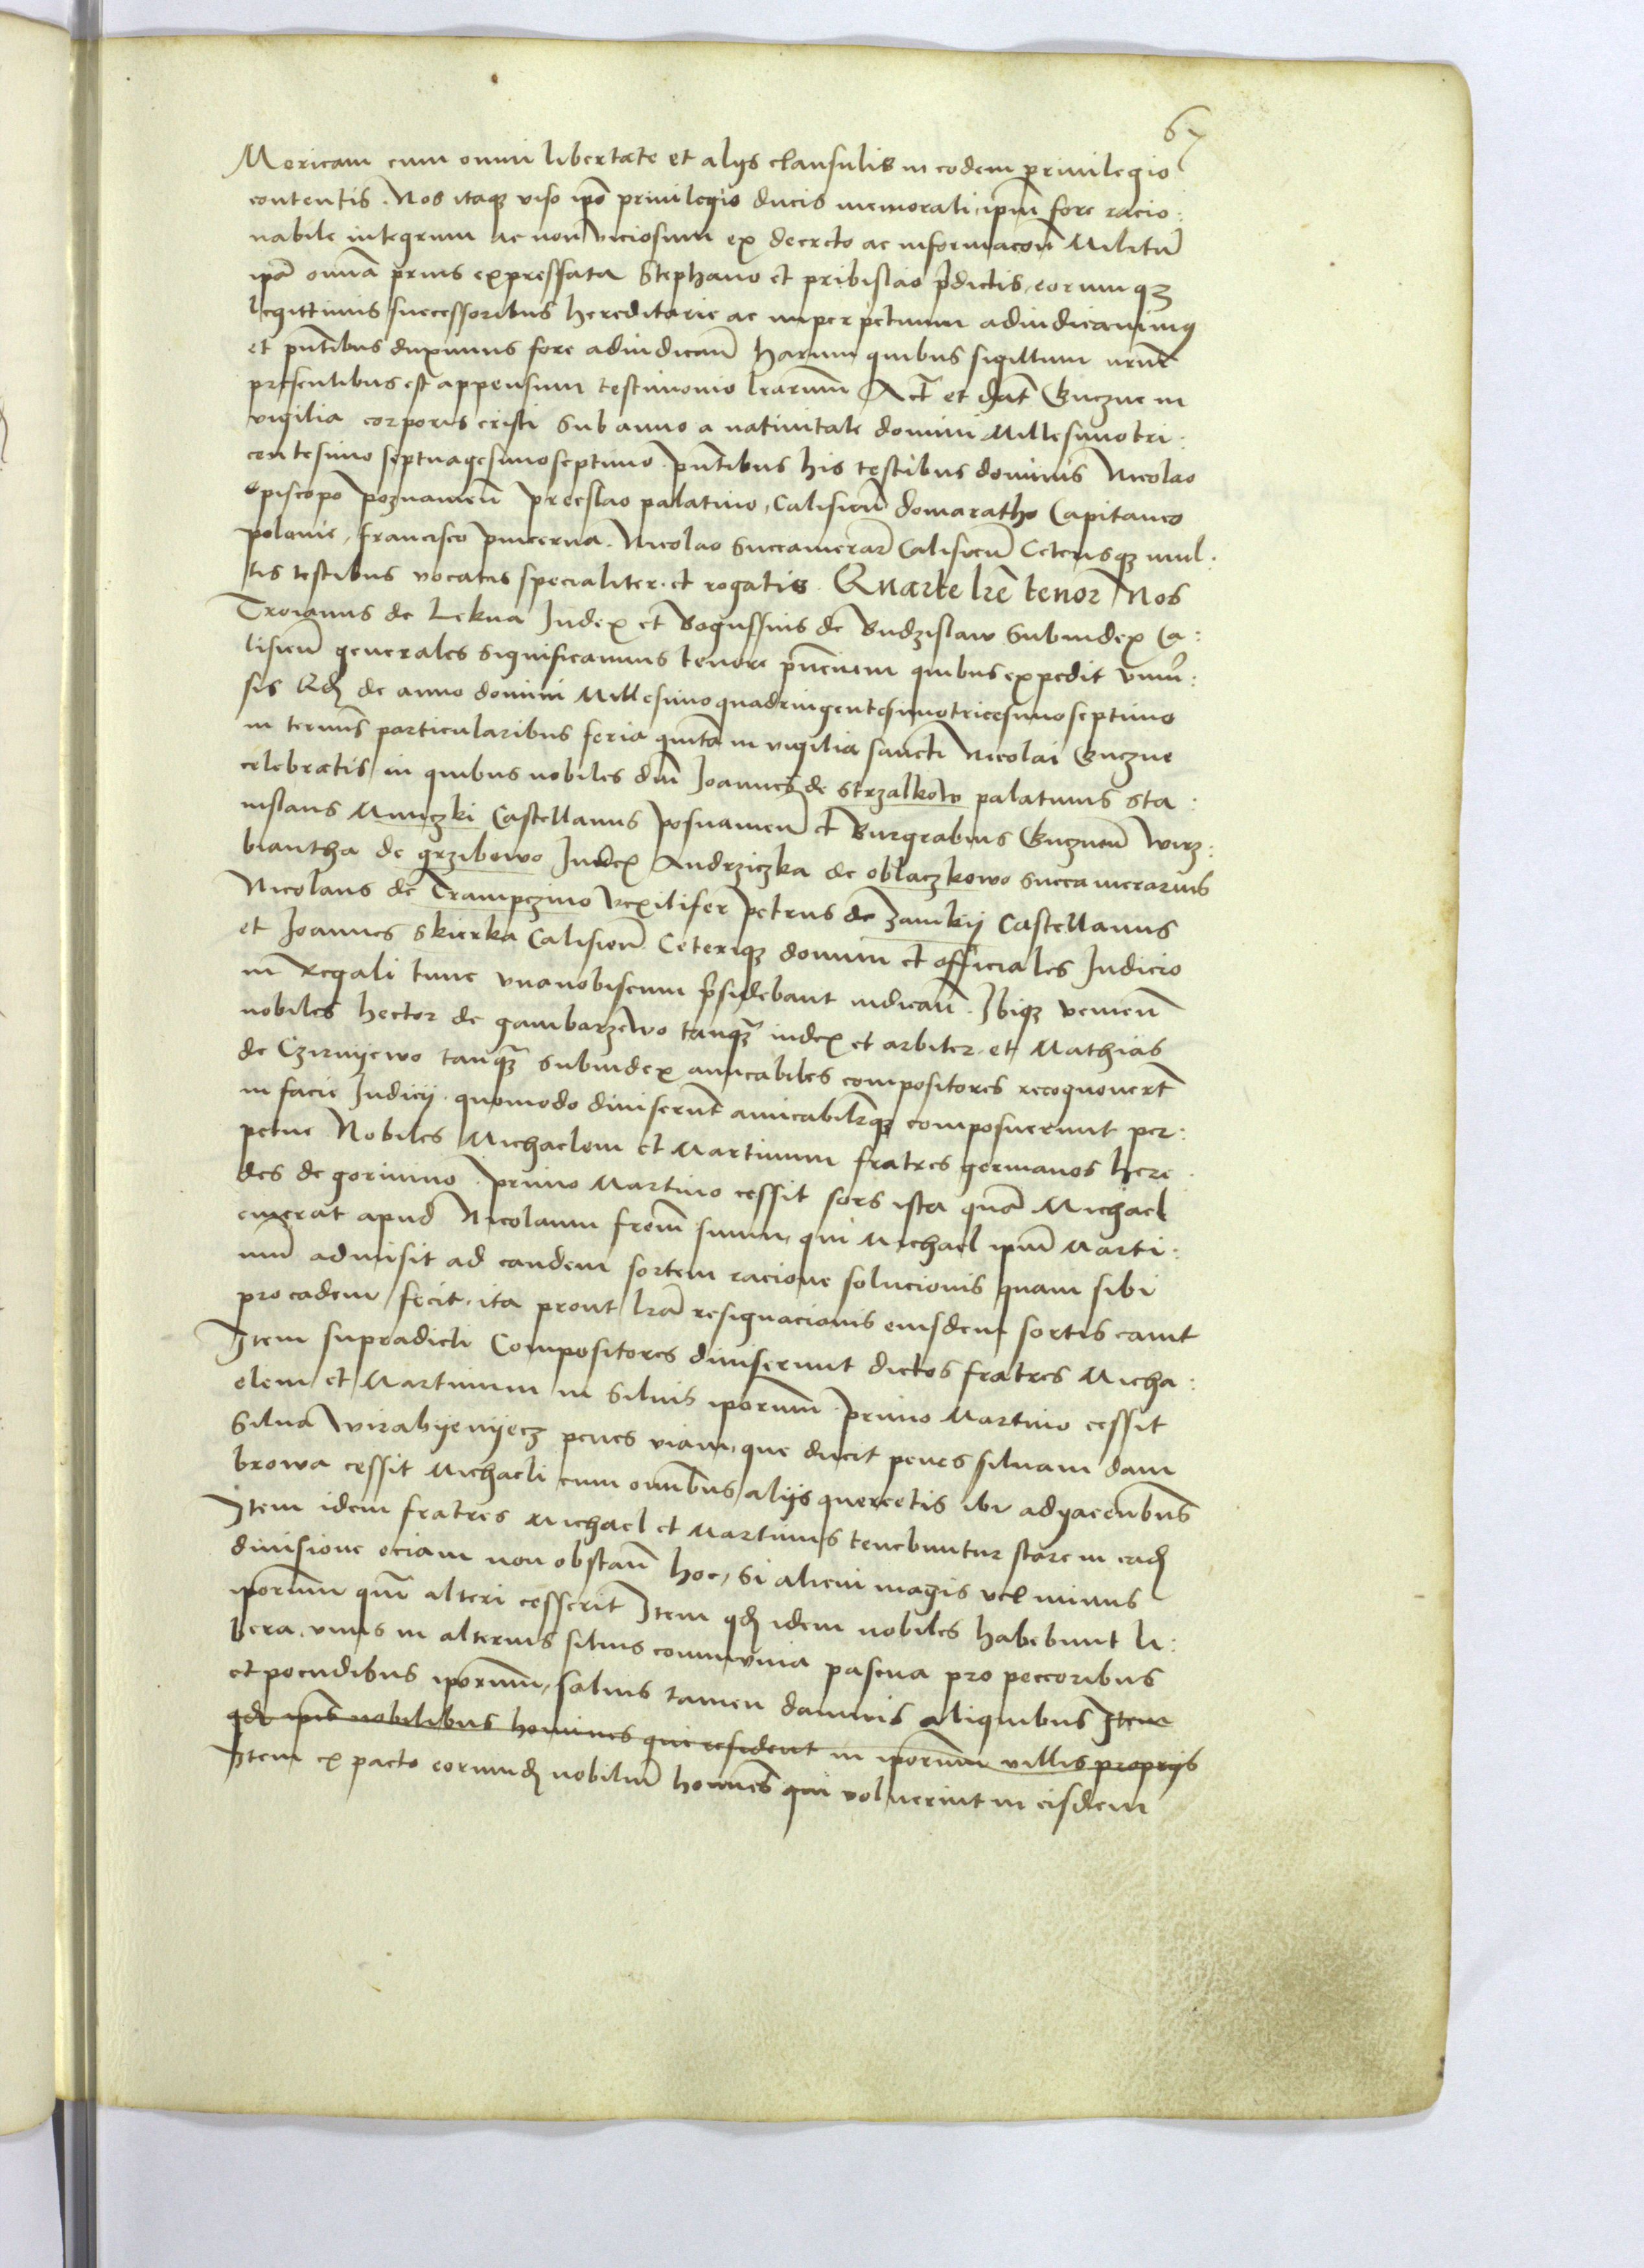 67
Moricam cum omni libertate et alijs clausulis in eodem priuilegio
contentis. Nos itaqꝫ viso ip̄o priuilegio ducis memorati, ip̄m fore racio:
nabile integrum ac non viciosum ex decreto ac informacōn Militū
ip̄a om̄ia prius expressata Stephano et pribislao p̄dictis, eorumqꝫ
legittimis successoribus hereditarie ac inperpetuum adiudicauimus
et pn̄tibus duximus fore adiudican̄ Harum quibus sigillum nr̄um
presentibus est appensum testimonio lrarum̄ Act̄ et dat̄ Gnezne in
vigilia corporis cristi Sub anno a natiuitate domini Millesimotri:
centesimo septuagesimoseptimo. pn̄tibus his testibus dominis Nicolao
Episcopo poznamen̄ Preeslao palatino, Calisien̄ domaratho Capitaneo
polonie, francisco pincerna. Nicolao Succamerar̄ Calisien̄ Ceterisqꝫ mul:
tis testibus vocatis specialiter et rogatis. Quarte lr̄e tenor Nos
Troianus de Lekna Judex et Bogussius de Budzislaw Subiudex Ca:
lisien̄ generales significamus tenore pn̄cium quibus expedit vniu̅:
sis Qd̄ de anno domini Millesimoquadringentesimotricesimoseptimo
in termīs particularibus feria quīta in vigilia sancti Nicolai Gnezne
celebratis in quibus nobiles dn̄i Joannes de Strzalkow palatinus Sta:
nislaus Munczki Castellanus Posnanien̄ et Burgrabius Gneznen̄ Wirz:
biantha de grzibowo Judex Andrziczka de oblaczkowo Succamerarius
Nicolaus de Trampczino Vexilifer Petrus de Zamkij Castellanus
et Joannes Skierka Calisien̄ Ceteriqꝫ domini et officiales Judicio
in Regali tunc vnanobiscum p̄sidebant iudican̄. Ibiqꝫ venien̄
nobiles hector de gambarzewo tanqꝫ iudex et arbiter et Mathias
de Czirnijewo tanqꝫ Subiudex amicabiles compositores recognouer̄t
in facie Judicij. quomodo diuiserūt amicabilr̄qꝫ composuerunt per:
petue Nobiles Michaelem et Martinum fratres germanos here
des de gorinino. Primo Martino cessit sors ista quā Michael
emerat apud Nicolaum frēm suum, qui Michael ip̄m Marti:
num̄ admisit ad eandem sortem racione solucionis quam sibi
pro eadem fecit, ita prout lr̄a resignacionis eiusdem sortis canit
Item supradicti Compositores diuiserunt dictos fratres Micha:
elem et Martinum in Siluis ip̄orum̄. Primo Martino cessit
Silua Wirabijenijecz penes viam, que ducit penes siluam dam
browa cessit Michaeli cum omībus alijs quercetis ibi adyacentibus
Item idem fratres Michael et Martinus tenebuntur stare in ead̄
diuisione eciam non obstan̄ hoc, Si alicui magis vel minus
ip̄orum̄ qm̄ alteri cesserit Item qd̄ idem nobiles habebunt li:
bera vnus in alterius siluis communia pascua pro peccoribus
et pecudibus ip̄orum̄, saluis tamen damnis aliquibus Item
qd̄ ip̄is nobilibus homines qui resident in ip̄orum̄ villis proprijs
Item ex pacto eorumd̄ nobilium̄ homines qui voluerint in eisdem